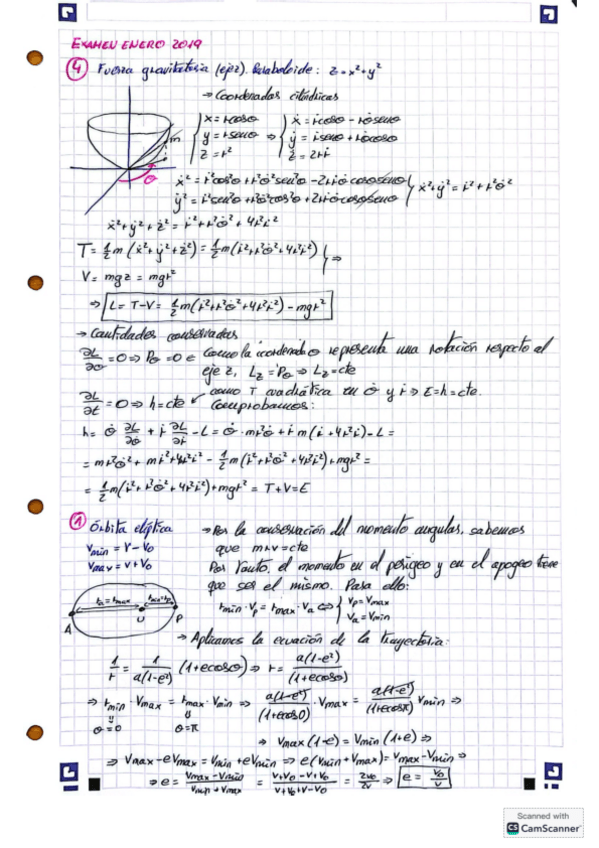 EXAMEN ENERO 2019
④ Fuerza gravitatoria (eje z). Paraboloide: z = x²+y²
→ Coordenadas cilíndricas
x = rcosθ
y = rsenθ
z = r²
⇒
ẋ = ṙcosθ - rθ̇senθ
ẏ = ṙsenθ + rθ̇cosθ
ż = 2rṙ
m
θ
ẋ² = ṙ²cos²θ + r²θ̇²sen²θ - 2rṙθ̇cosθsenθ
ẏ² = ṙ²sen²θ + r²θ̇²cos²θ + 2rṙθ̇cosθsenθ
ẋ²+ẏ² = ṙ²+r²θ̇²
ẋ²+ẏ²+ż² = ṙ²+r²θ̇²+4r²ṙ²
T = 1/2 m (ẋ²+ẏ²+ż²) = 1/2 m (ṙ²+r²θ̇²+4r²ṙ²)
V = mgz = mgr²
⇒
⇒ L = T-V = 1/2 m(ṙ²+r²θ̇²+4r²ṙ²) - mgr²
→ Cantidades conservadas
∂L/∂θ = 0 ⇒ Ṗθ = 0 ← Como la coordenada θ representa una rotación respecto al
eje z, Lz = Pθ ⇒ Lz = cte
∂L/∂t = 0 ⇒ h = cte ↙ como T cuadrática en θ̇ y ṙ ⇒ E = h = cte.
Comprobamos:
h = θ̇ ∂L/∂θ̇ + ṙ ∂L/∂ṙ - L = θ̇ · mr²θ̇ + ṙ m(ṙ + 4r²ṙ) - L =
= mr²θ̇² + mṙ² + 4r²ṙ² - 1/2 m(ṙ²+r²θ̇²+4r²ṙ²) + mgr² =
= 1/2 m(ṙ²+r²θ̇²+4r²ṙ²) + mgr² = T+V = E
① Órbita elíptica
Vmin = V - V₀
Vmax = V + V₀
→ Por la conservación del momento angular, sabemos
que mrv = cte
Por tanto, el momento en el perigeo y en el apogeo tiene
que ser el mismo. Para ello:
rmin · Vp = rmax · Va ⇔
Vp = Vmax
Va = Vmin
ra = rmax
rmin = rp
A
P
→ Aplicamos la ecuación de la trayectoria:
1/r = 1/a(1-e²) (1+ecosθ) ⇒ r = a(1-e²)/(1+ecosθ)
⇒ rmin · Vmax = rmax · Vmin ⇒ a(1-e²)/(1+ecos0) · Vmax = a(1-e²)/(1+ecosπ) Vmin ⇒
θ=0
θ=π
⇒ Vmax (1-e) = Vmin (1+e) ⇒
⇒ Vmax - eVmax = Vmin + eVmin ⇒ e(Vmin + Vmax) = Vmax - Vmin ⇒
⇒ e = Vmax - Vmin / Vmin + Vmax = V+V₀-V+V₀ / V+V₀+V-V₀ = 2V₀/2V ⇒ e = V₀/V
Scanned with
CS CamScanner